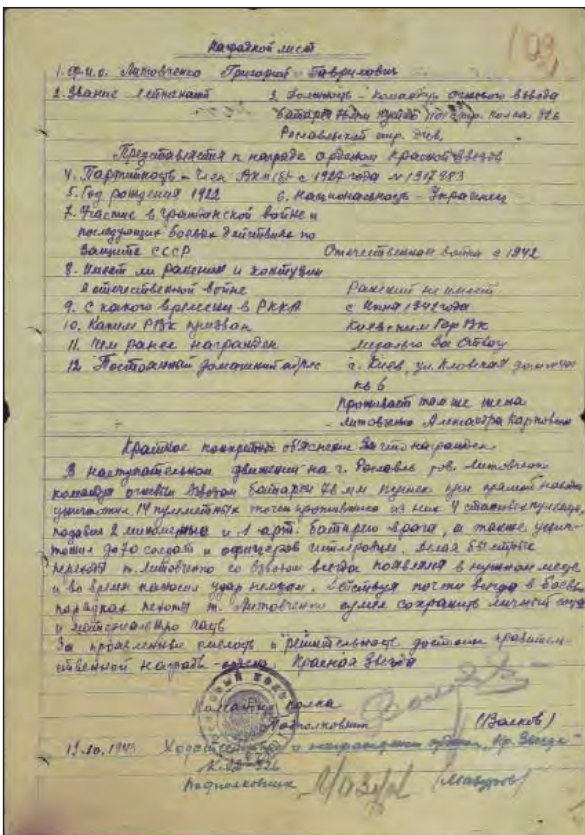 Наградной лист
1. Ф.и.о. Литовченко Григорий Гаврилович
2. Звание Лейтенант 3. Должность - командир огневого взвода
батареи 76 мм пушек стр. полка 326
Рославльской стр. див.
Представляется к награде орденом Красной Звезды
4. Партийность - член ВКП(б) с 1927 года № 1917983
5. Год рождения 1922 6. Национальность - Украинец
7. Участие в гражданской войне и
последующих боевых действиях по
защите СССР Отечественная война с 1942
8. Имеет ли ранения и контузии
в отечественной войне Ранений не имеет
9. С какого времени в РККА с Июня 1942 года
10. Каким РВК призван Киевским Гор ВК
11. Чем ранее награжден медалью За Отвагу
12 Постоянный домашний адрес г. Киев, ул. Кловская дом
кв 6
Проживает там же жена
Литовченко Александра Карповна
Краткое конкретное объяснение За что награжден
В наступательном движении на г. Рославль тов. Литовченко
командуя огневым взводом батареи 76 мм пушек при прямой наводке
уничтожил 14 пулеметных точек противника из них 4 станковых пулемета,
подавил 2 минометные и 1 арт. батарею врага, а также уничтожил
до 70 солдат и офицеров гитлеровцев. Делая быстрые
переходы т. Литовченко со взводом всегда появлялся в нужном месте
и во время наносил удар немцам. Действуя почти всегда в боевых
порядках пехоты т. Литовченко сумел сохранить личный состав
и материальную часть
За проявленные смелость и решительность достоин правитель-
ственной награды - ордена Красная Звезда
Командир полка
Подполковник (Волков)
19.10.1943 Ходатайствую о награждении орденом "Кр. Звезда"
К-р 326
Подполковник (Мазуров)